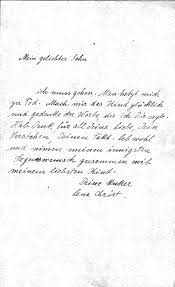 Mein geliebter Sohn
ich muss gehen. Man hetzt mich
zu Tod. Mach mir das Kind glücklich
und gedenke der Worte die ich Dir sagte.
Hab Dank für all Deine Liebe, Dein
Verstehen Deinen Takt. Leb wohl
und nimm meinen innigsten
Segenswunsch zusammen mit
meinem liebsten Kind.
Deine Mutter
Lena Christ